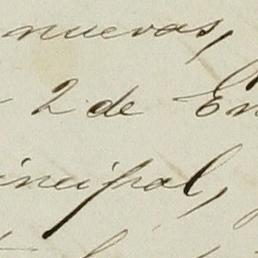 nuevas,
2 de En
incipal,